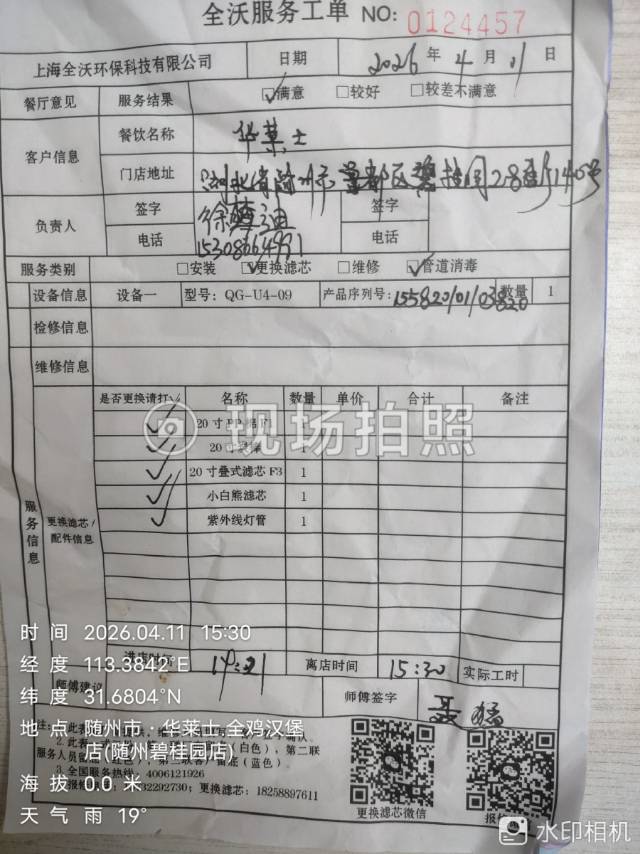 全沃服务工单 NO: 0124457
上海全沃环保科技有限公司 日期 2026 年 4 月 01 日
餐厅意见 服务结果 ☑满意 □较好 □较差不满意
客户信息 餐饮名称 华莱士
门店地址 湖北省随州市曾都区碧桂园28栋140号
负责人 签字 徐 迪 签字
电话 15308664991 电话
服务类别 □安装 ☑更换滤芯 □维修 ☑管道消毒
设备信息 设备一 型号: QG-U4-09 产品序列号: 155820/01/03820 数量 1
检修信息
维修信息
服务信息
更换滤芯/配件信息
是否更换请打√ 名称 数量 单价 合计 备注
✓ 20寸PP棉F1
✓ 20寸 1
✓ 20寸叠式滤芯F3 1
✓ 小白熊滤芯 1
✓ 紫外线灯管 1
现场拍照
进店时间 14:21 离店时间 15:30 实际工时
师傅建议 师傅签字 聂猛
注:1.此表
2.此表 (白色),第二联
服务人员留底(红色),第三联客户留底(蓝色)。
3.全国服务热线:4006121926
32292730;更换滤芯:18258897611
更换滤芯微信 报
时间 2026.04.11 15:30
经度 113.3842°E
纬度 31.6804°N
地点 随州市·华莱士·全鸡汉堡
店(随州碧桂园店)
海拔 0.0 米
天气 雨 19°
水印相机